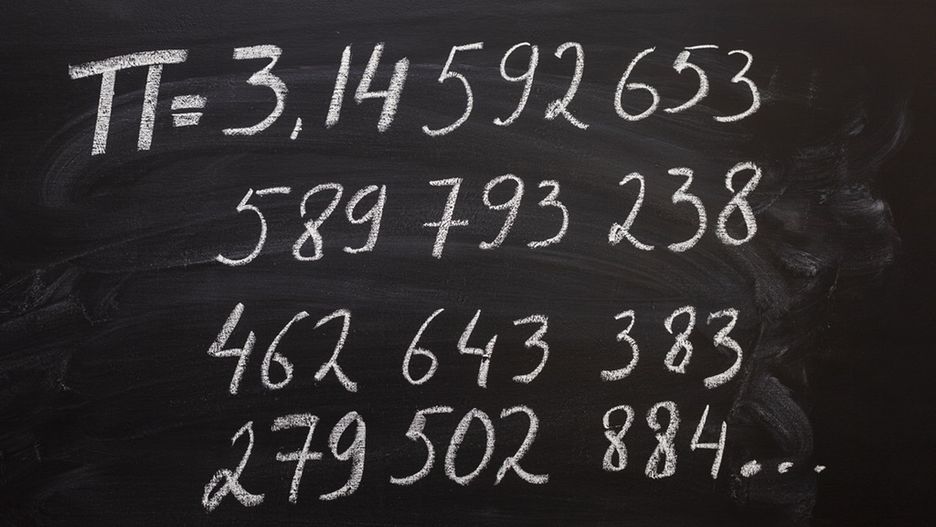 π=3,14 592 653
589 793 238
462 643 383
279 502 884...